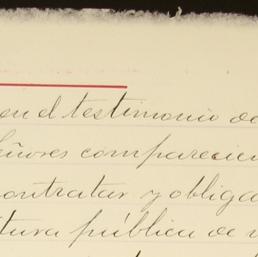 en el testimonio de
señores comparecien
contratar y obliga
tura pública de v